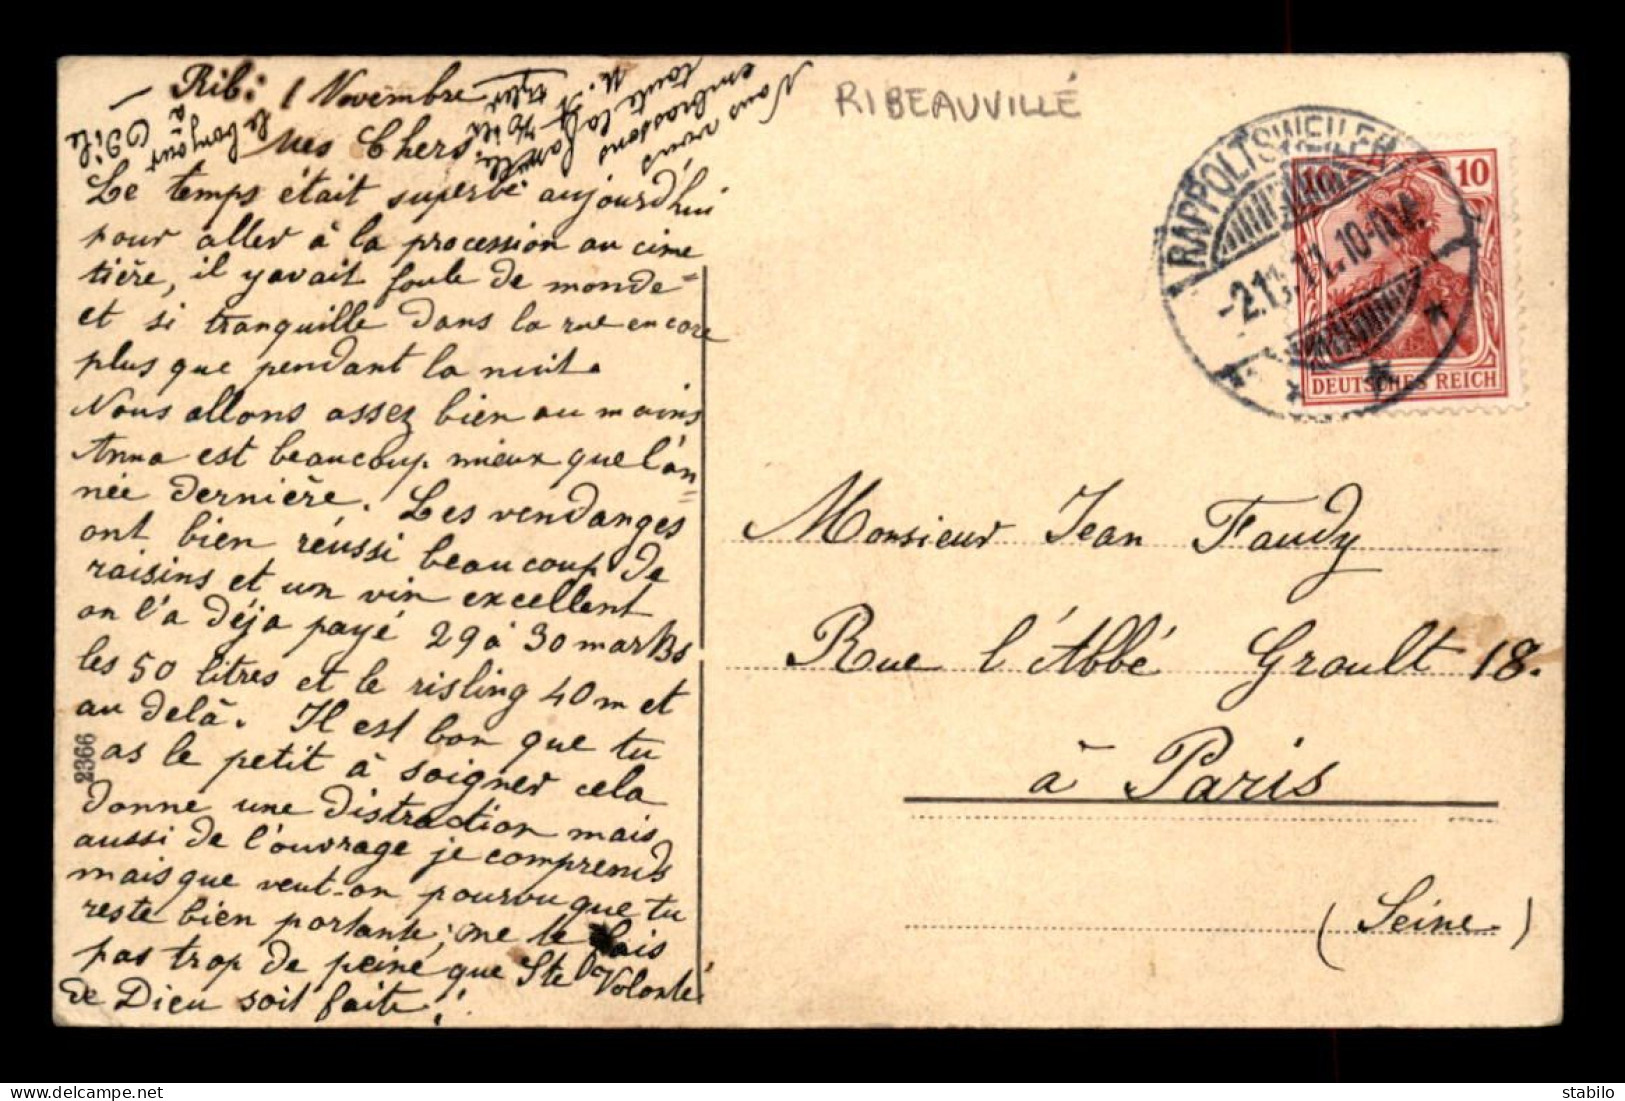 Rib: 1 Novembre
mes Chers
Le temps était superbe aujourd'hui
pour aller à la procession au cime
tière, il y avait foule de monde=
et si tranquille dans la rue encore
plus que pendant la nuit.
Nous allons assez bien au moins
Anna est beaucoup mieux que l'an=
née dernière. Les vendanges
ont bien réussi beaucoup de
raisins et un vin excellent
on l'a déja payé 29 à 30 marks
les 50 litres et le risling 40 m et
au delà. Il est bon que tu
as le petit à soigner cela
donne une distraction mais
aussi de l'ouvrage je comprends
mais que veut-on pourvu que tu
reste bien portante; ne te fais
pas trop de peine que Ste Volonté
de Dieu soit faite!
Nous vous
embrassons
toute la famille
le bonjour
à Odile
2366
RIBEAUVILLÉ
RAPPOLTSWEILER
-2.11.11.10-11V.
10 10
DEUTSCHES REICH
Monsieur Jean Faudy
Rue l'Abbé Groult 18.
à Paris
(Seine)
stabilo